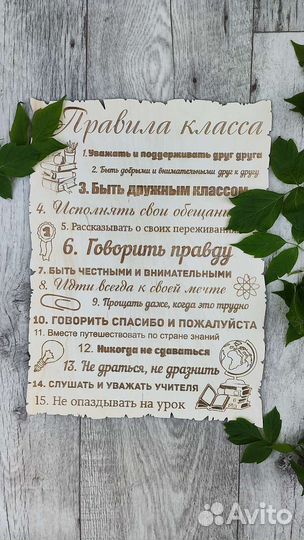 Правила класса
1. Уважать и поддерживать друг друга
2. Быть добрыми и внимательными друг к другу
3. БЫТЬ ДРУЖНЫМ КЛАССОМ
4. Исполнять свои обещани
5. Рассказывать о своих переживания
6. Говорить правду
7. БЫТЬ ЧЕСТНЫМИ И ВНИМАТЕЛЬНЫМИ
8. Идти всегда к своей мечте
9. Прощать даже, когда это трудно
10. ГОВОРИТЬ СПАСИБО И ПОЖАЛУЙСТА
11. Вместе путешествовать по стране знаний
12. Никогда не сдаваться
13. Не драться, не дразнить
14. СЛУШАТЬ И УВАЖАТЬ УЧИТЕЛЯ
15. Не опаздывать на урок
Avito